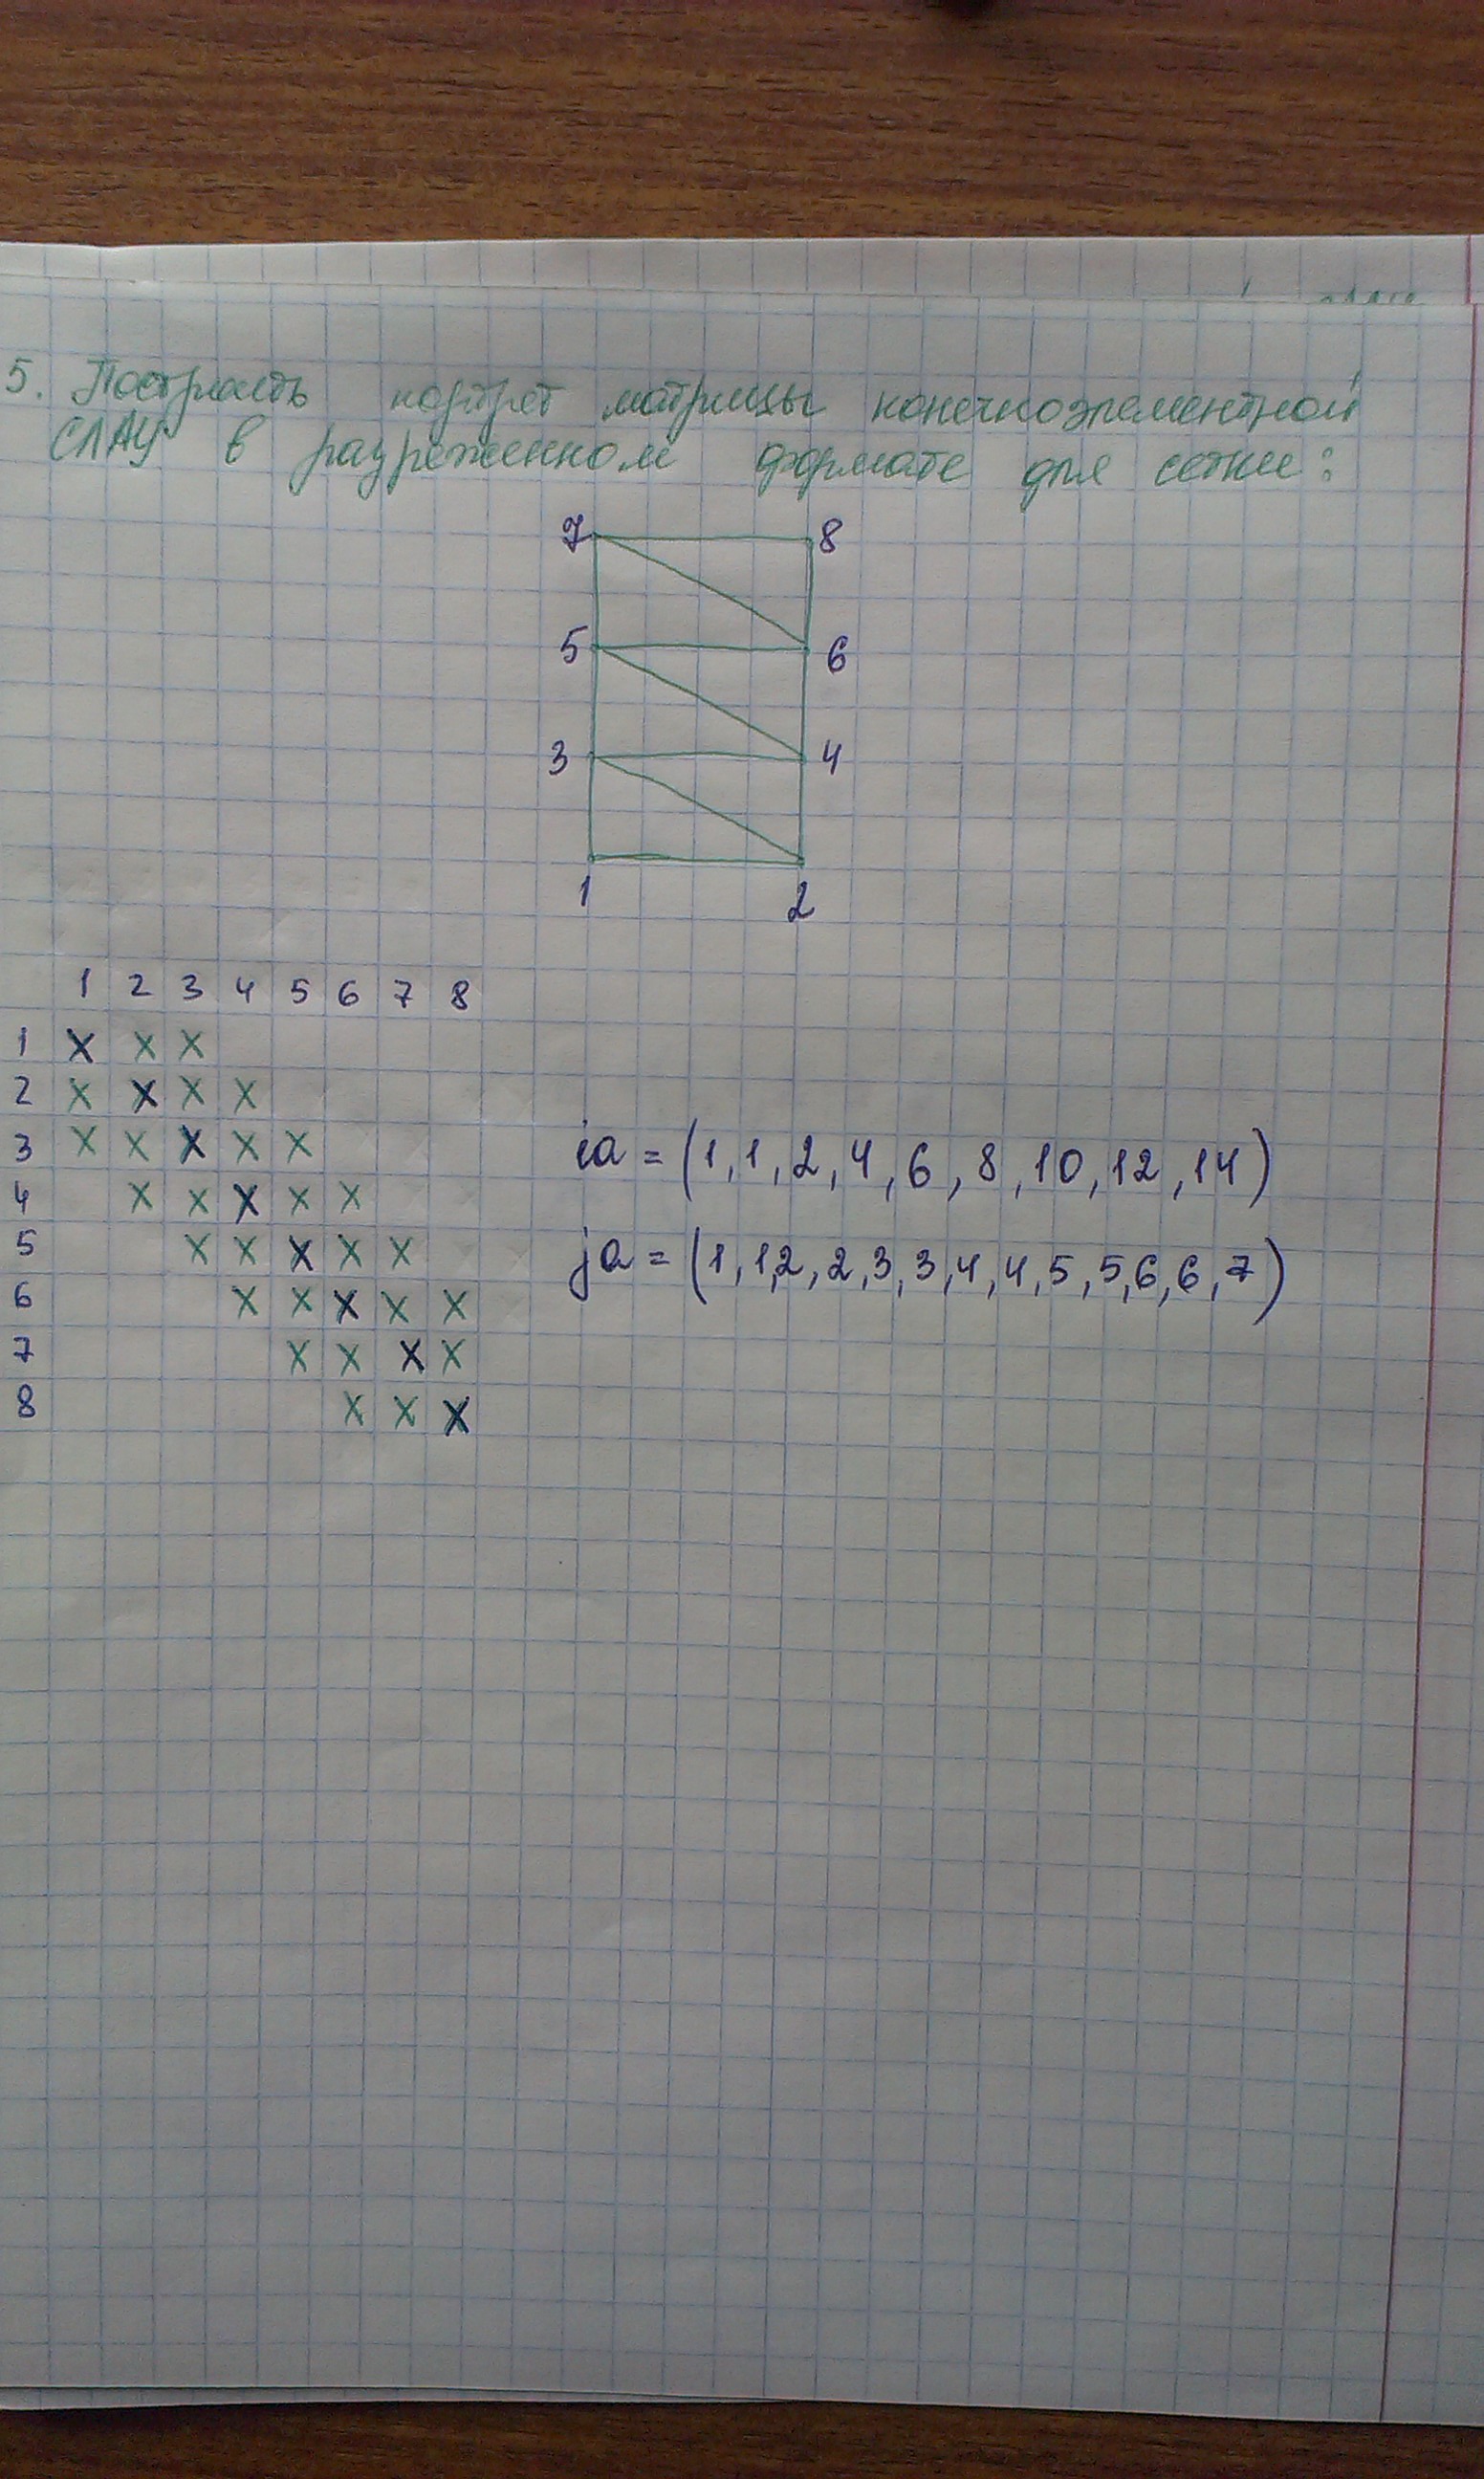 5. Построить портрет матрицы конечноэлементной
СЛАУ в разреженном формате для сетки:
7 8
5 6
3 4
1 2
1 2 3 4 5 6 7 8
1 X X X
2 X X X X
3 X X X X X
4 X X X X X
5 X X X X X
6 X X X X X
7 X X X X
8 X X X
ia = (1, 1, 2, 4, 6, 8, 10, 12, 14)
ja = (1, 1, 2, 2, 3, 3, 4, 4, 5, 5, 6, 6, 7)